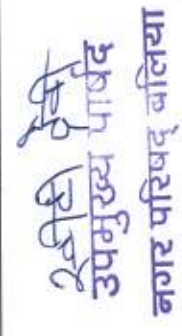 देवी
उपमुख्य पार्षद
नगर परिषद् बलिया